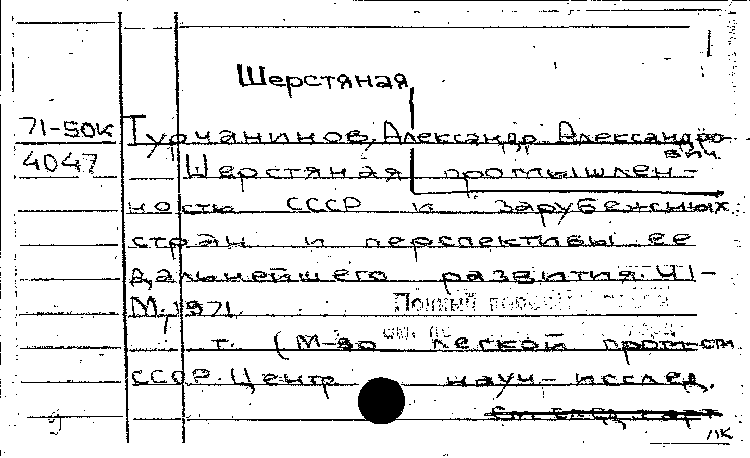 Шерстяная
71-50к Турчанинов, Александр Александро-
вич
4047 Шерстяная промышлен-
ность СССР и зарубежных
стран и перспективы ее
дальнейшего развития. Ч1-
М., 1971.
т. (М-во легкой пром-сти
СССР. Центр науч-исслед.
См. след. карт